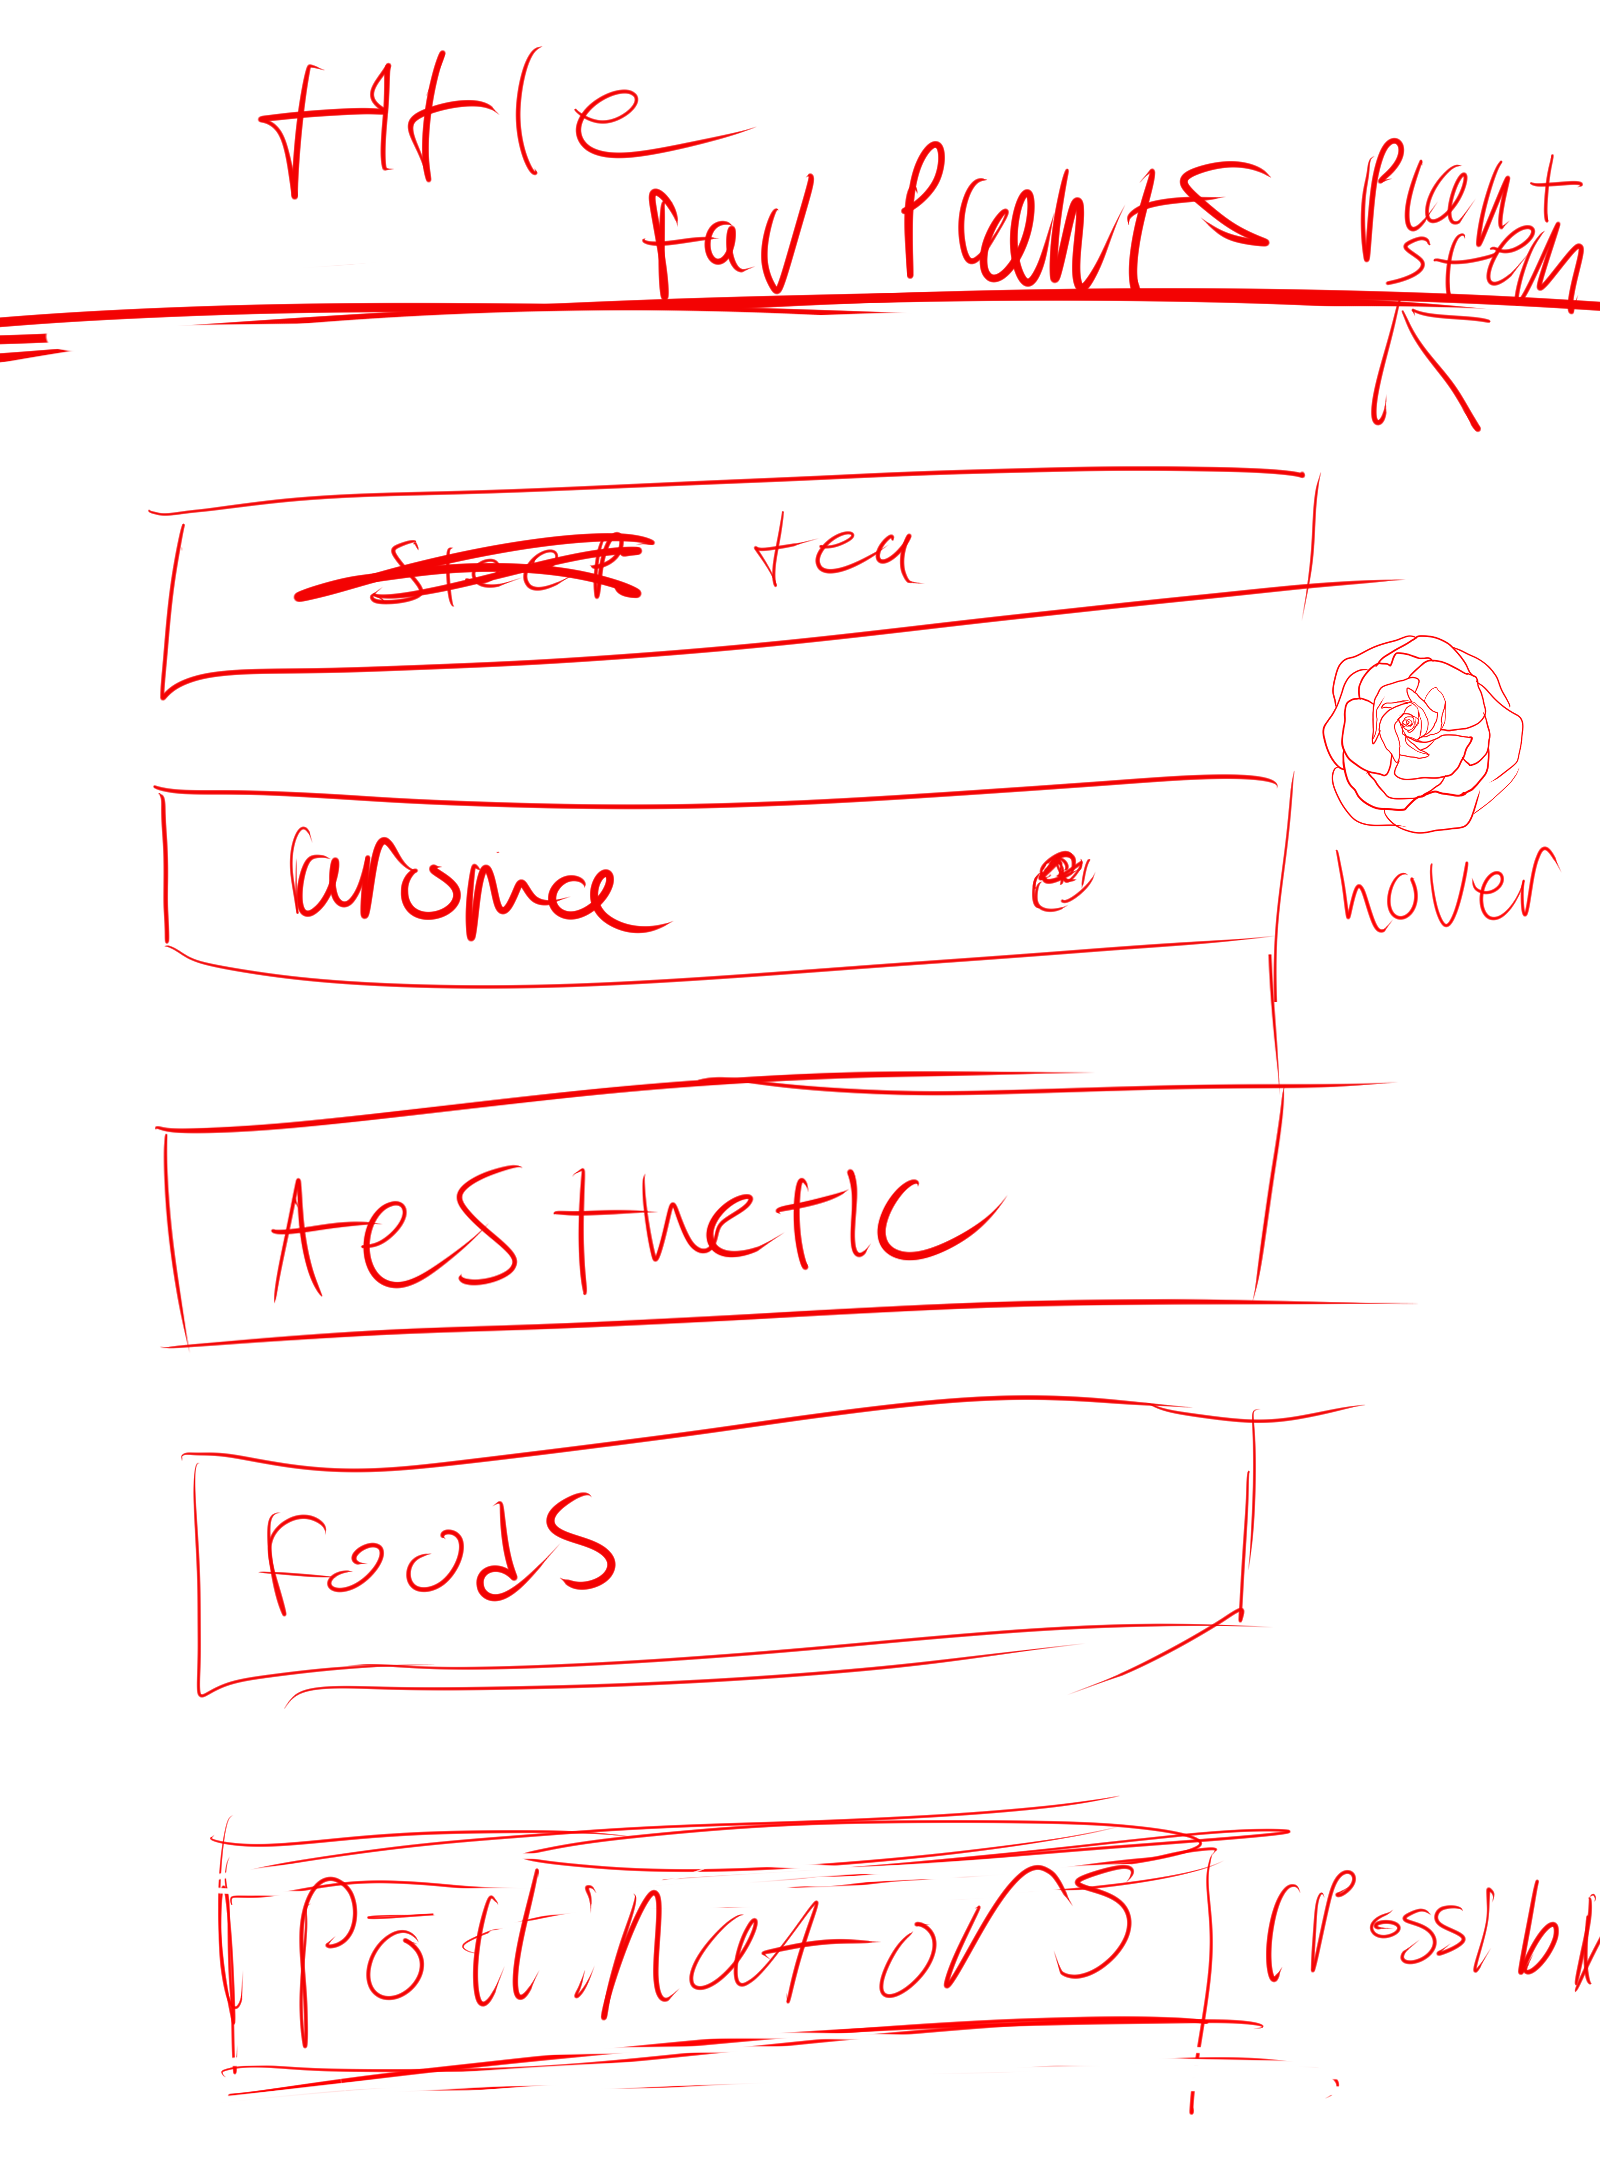 title
fav Plants
Plant
stem
tea
aroma
hover
Aesthetic
Foods
Pollinators
(Possibl